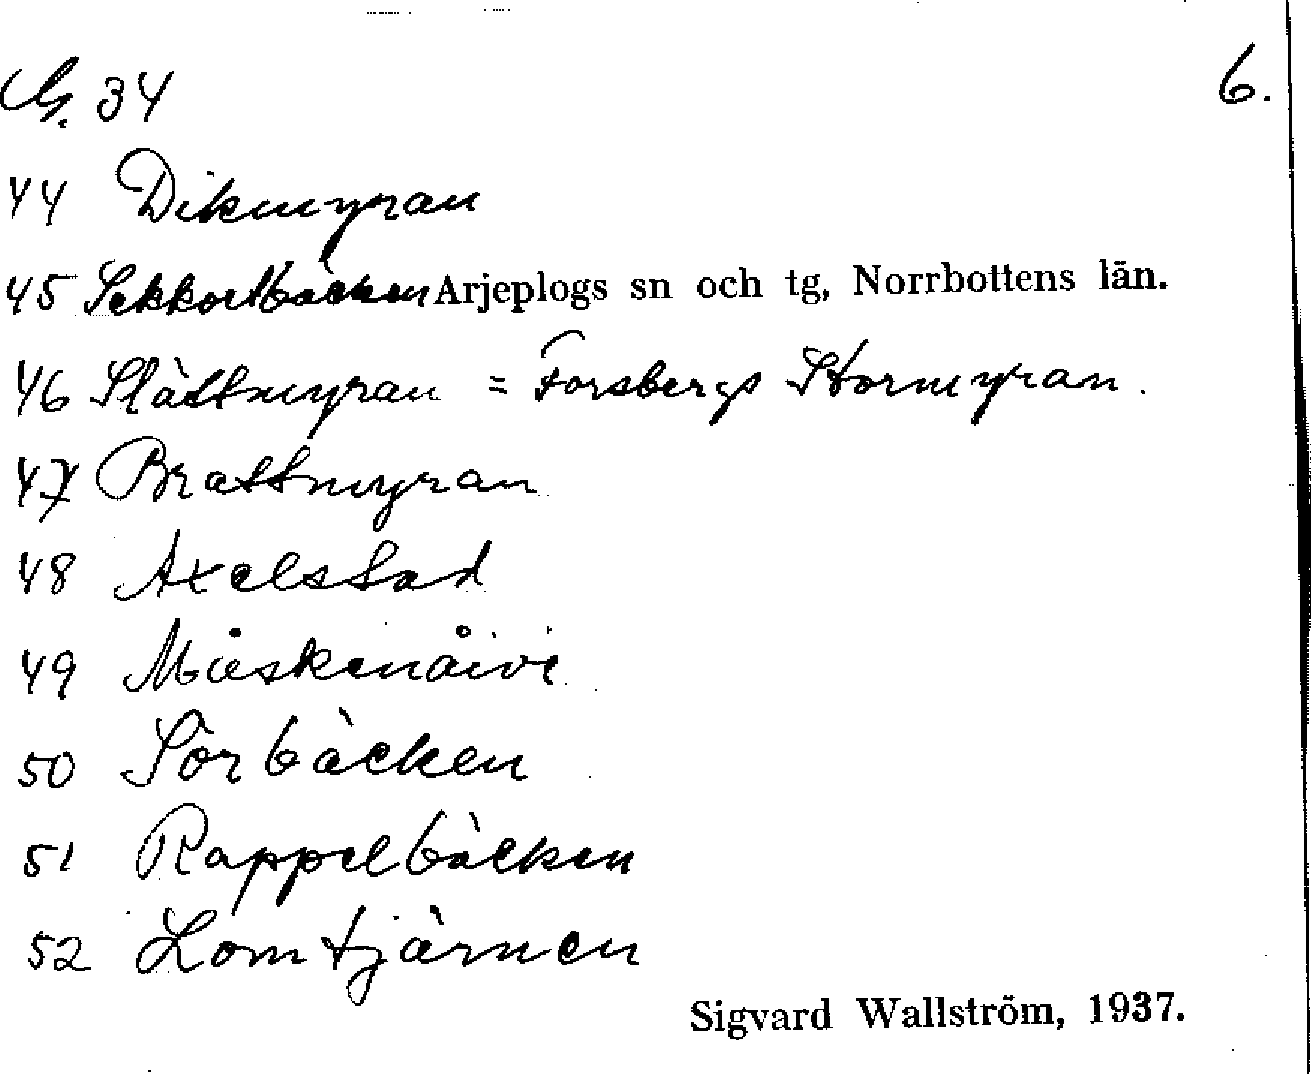 G. 34 6.
44 Dikmyran
45 Arjeplogs sn och tg, Norrbottens län.
46 Slåttmyran = Forsbergs Stormyran.
47 Brattmyran
48 Axelstad
49 Måskenåive
50 Sörbäcken
51 Rappelbäcken
52 Lomtjärnen
Sigvard Wallström, 1937.